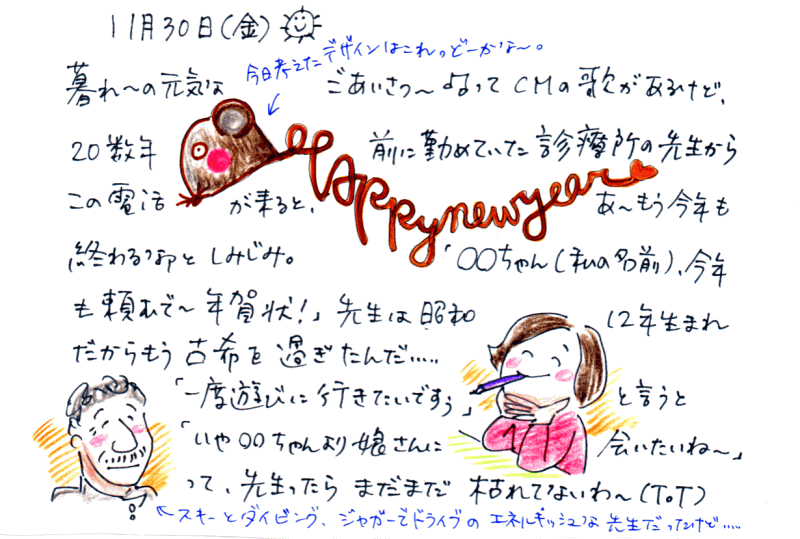 11月30日(金)
今日考えたデザインはこれっどーかな〜。
暮れ〜の元気な ごあいさつ〜 よってCMの歌があるけど、
20数年 前に勤めていた診療所の先生から
この電話 が来ると、 あ〜もう今年も
Happy new year
終わるなアと しみじみ。 「〇〇ちゃん(私の名前)、今年
も頼むで〜年賀状!」先生は昭和 12年生まれ
だからもう 古希を過ぎたんだ.....
「一度遊びに行きたいですぅ」 と言うと
「いや〇〇ちゃんより娘さんに 会いたいね〜」
って、先生ったら まだまだ 枯れてないわ〜(T○T)
←スキーとダイビング、ジャガーでドライブの エネルギッシュな先生だったけど.....